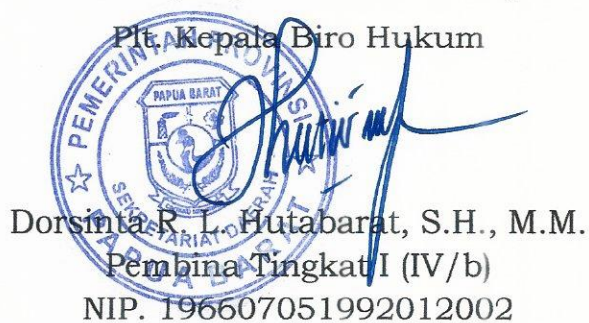 Plt. Kepala Biro Hukum
PEMERINTAH PROVINSI
PAPUA BARAT
SEKRETARIAT DAERAH
PAPUA BARAT
Dorsinta R. L. Hutabarat, S.H., M.M.
Pembina Tingkat I (IV/b)
NIP. 196607051992012002